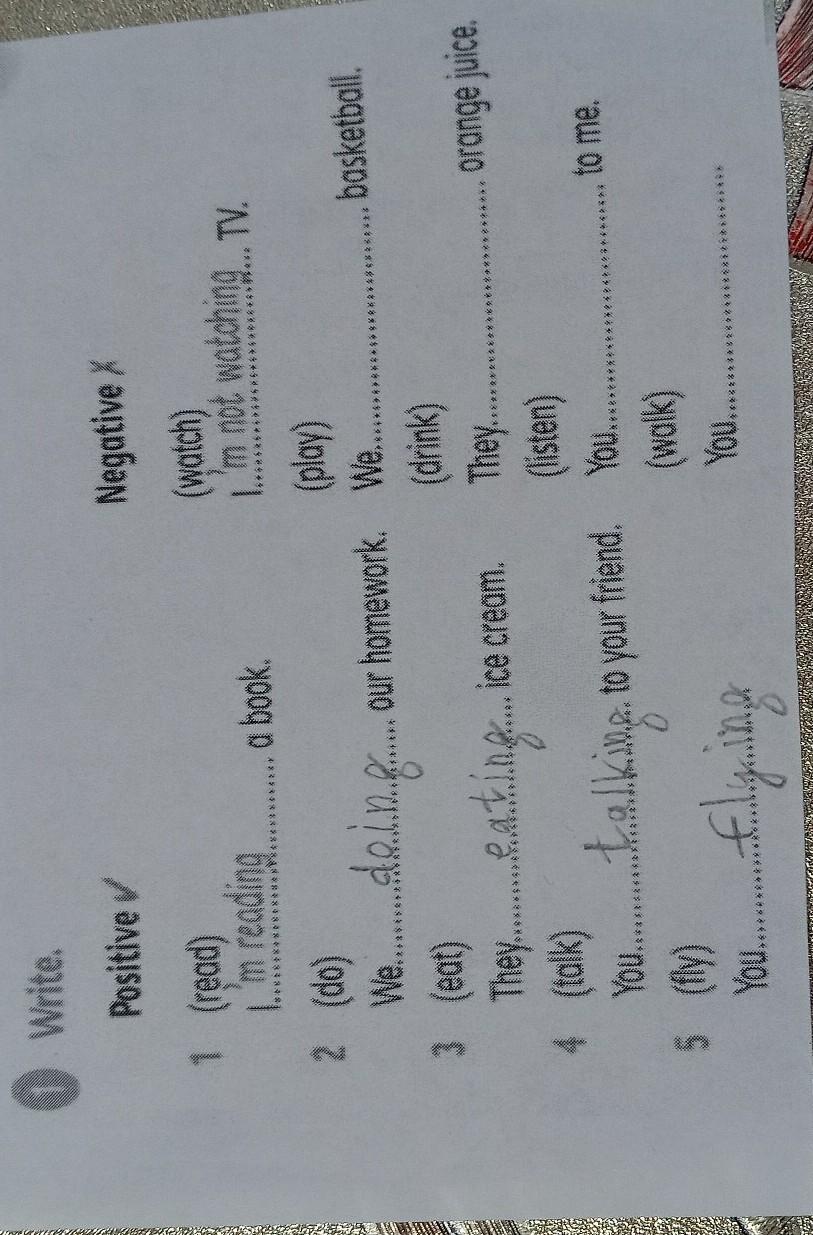 1 Write.
Positive ✓ Negative X
1 (read) (watch)
I'm reading a book. I'm not watching TV.
2 (do) (play)
We doing our homework. We basketball.
3 (eat) (drink)
They eating ice cream. They orange juice.
4 (talk) (listen)
You talking to your friend. You to me.
5 (fly) (walk)
You flying You